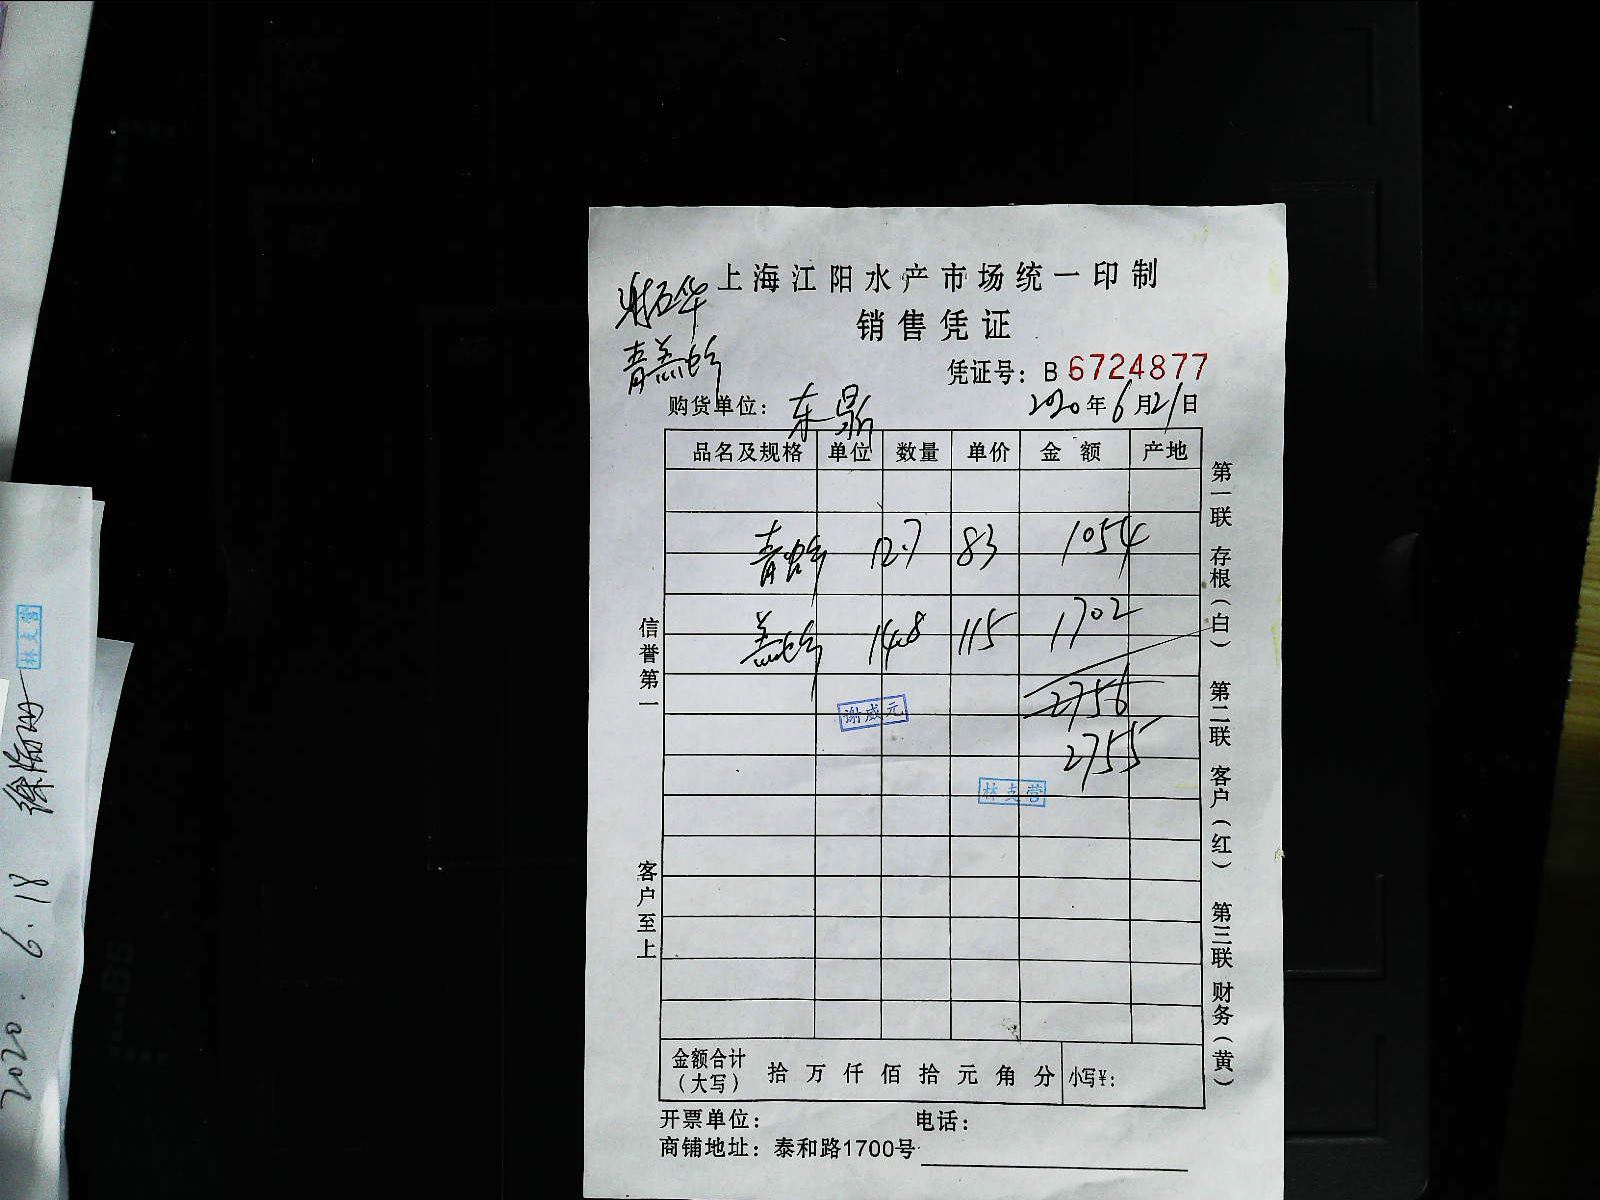 上海江阳水产市场统一印制
销售凭证
凭证号：B 6724877
购货单位：东鼎
2020年6月21日
品名及规格 单位 数量 单价 金额 产地
青蛤 12.7 83 1054
14.8 115 1702
2756
谢咸元
2755
林支营
金额合计（大写） 拾 万 仟 佰 拾 元 角 分 小写¥：
开票单位： 电话：
商铺地址：泰和路1700号
信誉第一
客户至上
第一联 存根（白） 第二联 客户（红） 第三联 财务（黄）
林支营
2020.6.18